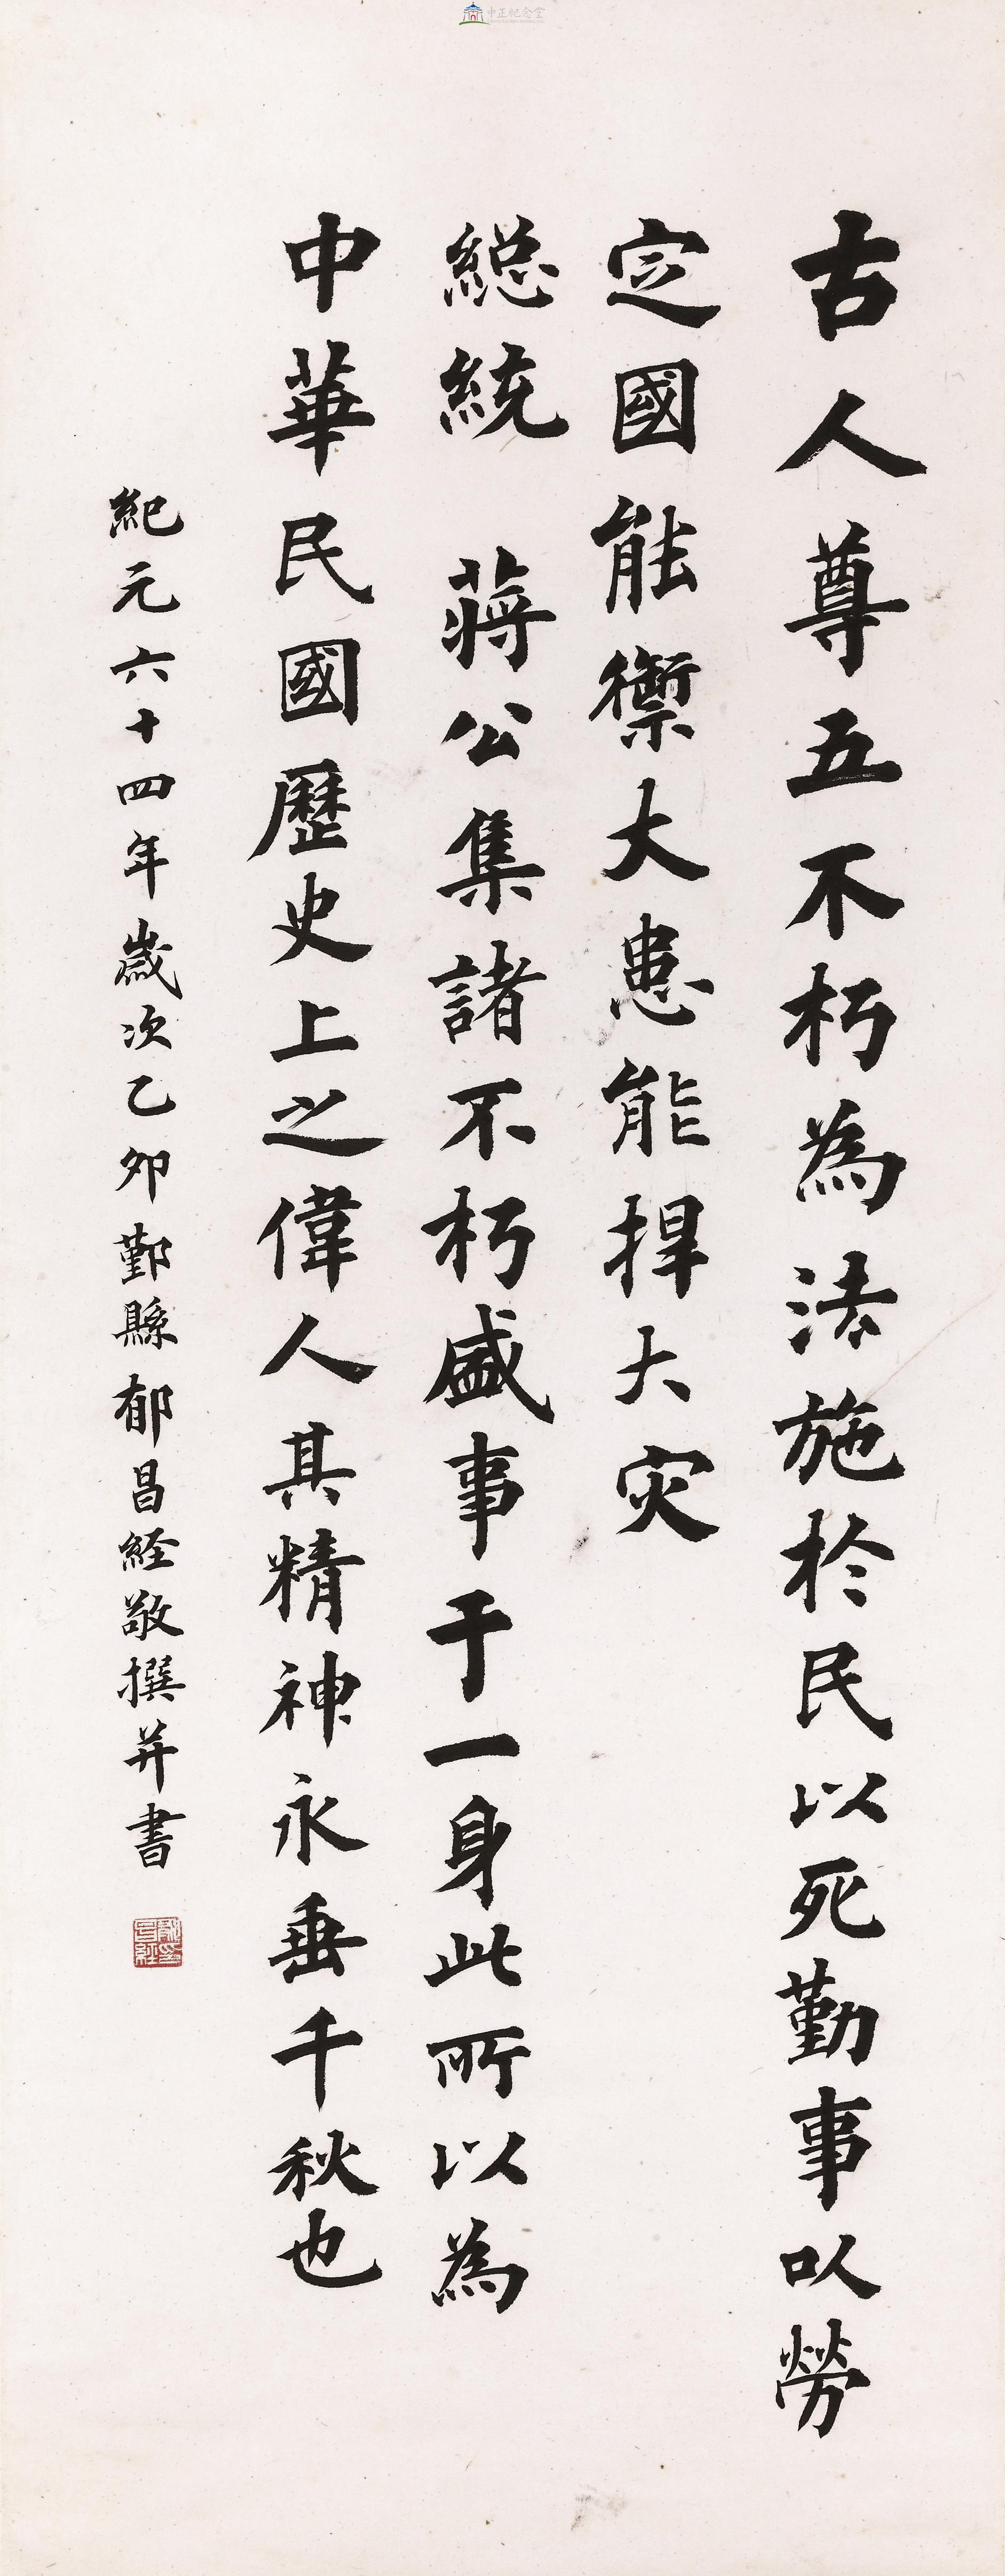 中正紀念堂
古人尊五不朽為法施於民以死勤事以勞
定國能禦大患能捍大灾
總統 蔣公集諸不朽盛事于一身此所以為
中華民國歷史上之偉人其精神永垂千秋也
紀元六十四年歲次乙卯鄞縣郁昌經敬撰并書